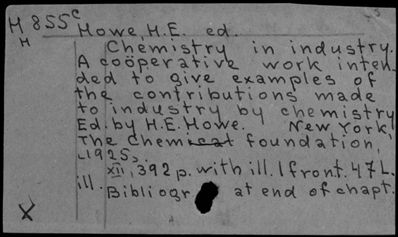 M 855c Howe, H.E. ed.
H Chemistry in industry.
A coöperative work inten-
ded to give examples of
the contributions made
to industry by chemistry
Ed. by H.E. Howe. New York,
The Chemical foundation,
1925.
XII, 392 p. with ill. 1 front. 47 L.
ill. Bibliogr at end of chapt.
X